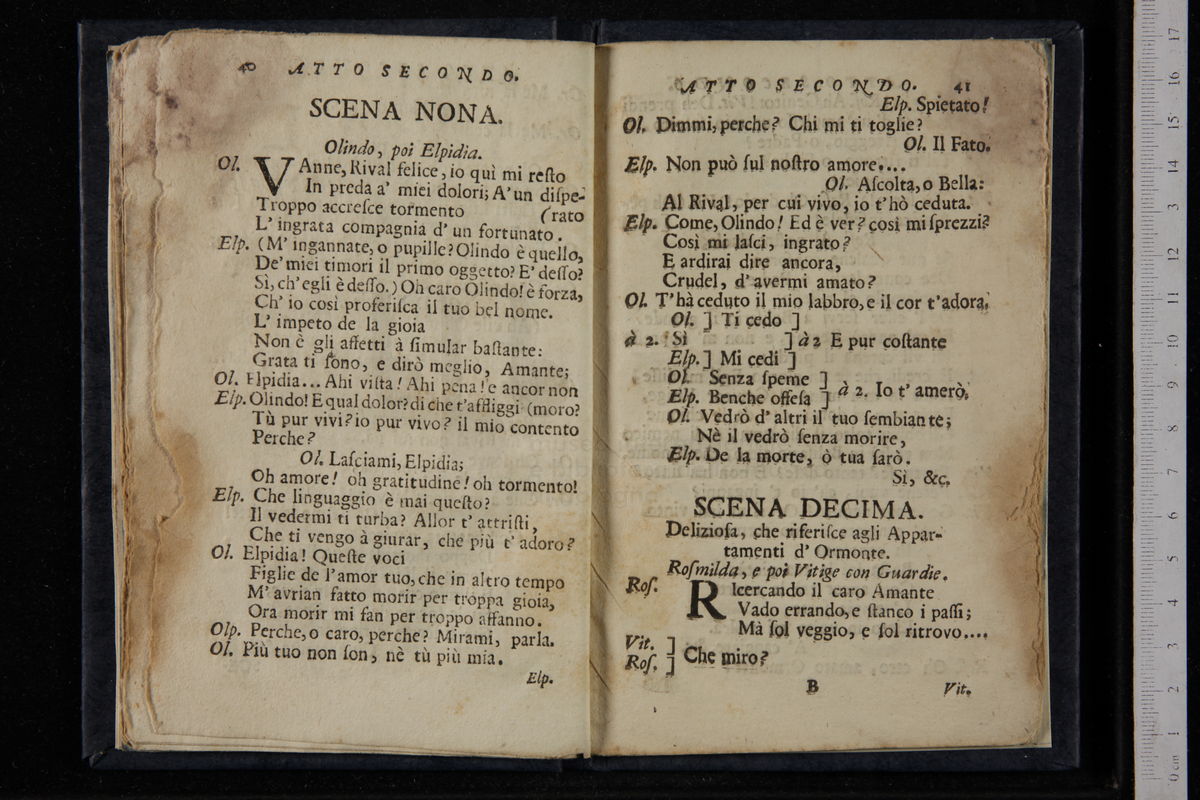 40 ATTO SECONDO.
SCENA NONA.
Olindo, poi Elpidia.
Ol. VAnne, Rival felice, io quì mi reſto
In preda a' miei dolori; A' un diſpe-
Troppo accreſce tormento (rato
L' ingrata compagnia d' un fortunato.
Elp. (M' ingannate, o pupille? Olindo è quello,
De' miei timori il primo oggetto? E' deſſo?
Sì, ch' egli è deſſo.) Oh caro Olindo! è forza,
Ch' io così proferiſca il tuo bel nome.
L' impeto de la gioia
Non è gli affetti à ſimular baſtante:
Grata ti ſono, e dirò meglio, Amante;
Ol. Elpidia... Ahi viſta! Ahi pena! e ancor non
Elp. Olindo! E qual dolor? di che t'affliggi (moro?
Tù pur vivi? io pur vivo? il mio contento
Perche?
Ol. Laſciami, Elpidia;
Oh amore! oh gratitudine! oh tormento!
Elp. Che linguaggio è mai queſto?
Il vedermi ti turba? Allor t' attriſti,
Che ti vengo à giurar, che più t' adoro?
Ol. Elpidia! Queſte voci
Figlie de l'amor tuo, che in altro tempo
M' avrian fatto morir per troppa gioia,
Ora morir mi fan per troppo affanno.
Olp. Perche, o caro, perche? Mirami, parla.
Ol. Più tuo non ſon, nè tù più mia.
Elp.
ATTO SECONDO. 41
Elp. Spietato!
Ol. Dimmi, perche? Chi mi ti toglie?
Ol. Il Fato.
Elp. Non può ſul noſtro amore....
Ol. Aſcolta, o Bella:
Al Rival, per cui vivo, io t'hò ceduta.
Elp. Come, Olindo! Ed è ver? così mi ſprezzi?
Così mi laſci, ingrato?
E ardirai dire ancora,
Crudel, d'avermi amato?
Ol. T'hà ceduto il mio labbro, e il cor t'adora.
Ol. ] Ti cedo ]
à 2. Sì ] à 2 E pur coſtante
Elp. ] Mi cedi ]
Ol. Senza ſpeme ] à 2. Io t' amerò.
Elp. Benche offeſa ]
Ol. Vedrò d' altri il tuo ſembiante;
Nè il vedrò ſenza morire,
Elp. De la morte, ò tua ſarò.
Sì, &c.
SCENA DECIMA.
Delizioſa, che riferiſce agli Appar-
tamenti d' Ormonte.
Roſmilda, e poi Vitige con Guardie.
Roſ. RIcercando il caro Amante
Vado errando, e ſtanco i paſſi;
Mà ſol veggio, e ſol ritrovo....
Vit. ]
Roſ. ] Che miro?
B Vit.